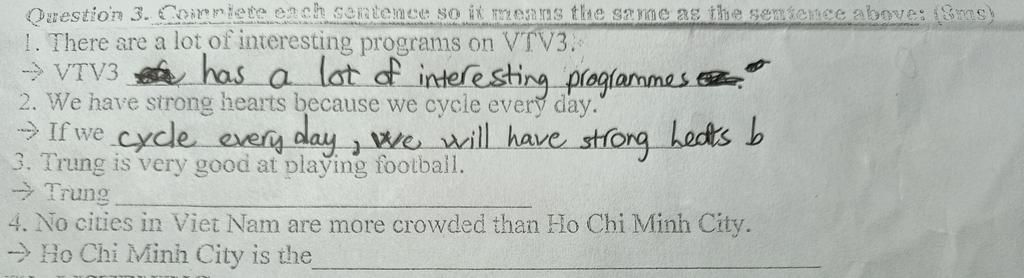 Question 3. Complete each sentence so it means the same as the sentence above: (8ms)
1. There are a lot of interesting programs on VTV3.
→ VTV3 has a lot of interesting programmes
2. We have strong hearts because we cycle every day.
→ If we cycle every day, we will have strong heats b
3. Trung is very good at playing football.
→ Trung
4. No cities in Viet Nam are more crowded than Ho Chi Minh City.
→ Ho Chi Minh City is the